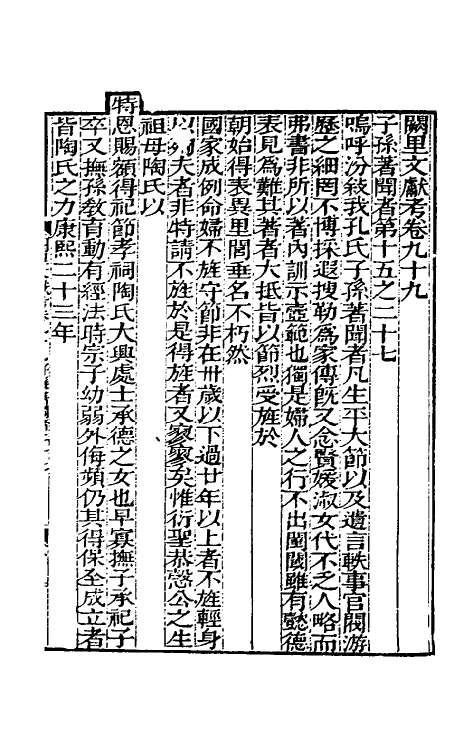 闕里文獻考卷九十九
子孫著聞者第十五之二十七
嗚呼汾敍我孔氏子孫著聞者凡生平大節以及遺言軼事官閥游
歷之細罔不博採遐搜勒為家傳旣又念賢媛淑女代不乏人略而
弗書非所以著內訓示壼範也獨是婦人之行不出閨闥雖有懿德
表見為難其著者大抵皆以節烈受旌於
朝始得表異里閭垂名不朽然
國家成例命婦不旌守節非在卅歲以下過廿年以上者不旌輕身
以夫者非特請不旌於是得旌者又寥寥矣惟衍聖恭慤公之生
祖母陶氏以
特恩賜額得祀節孝祠陶氏大興處士承德之女也早寡撫子承祀子
卒又撫孫敎育動有經法時宗子幼弱外侮頻仍其得保全成立者
皆陶氏之力康熙二十三年